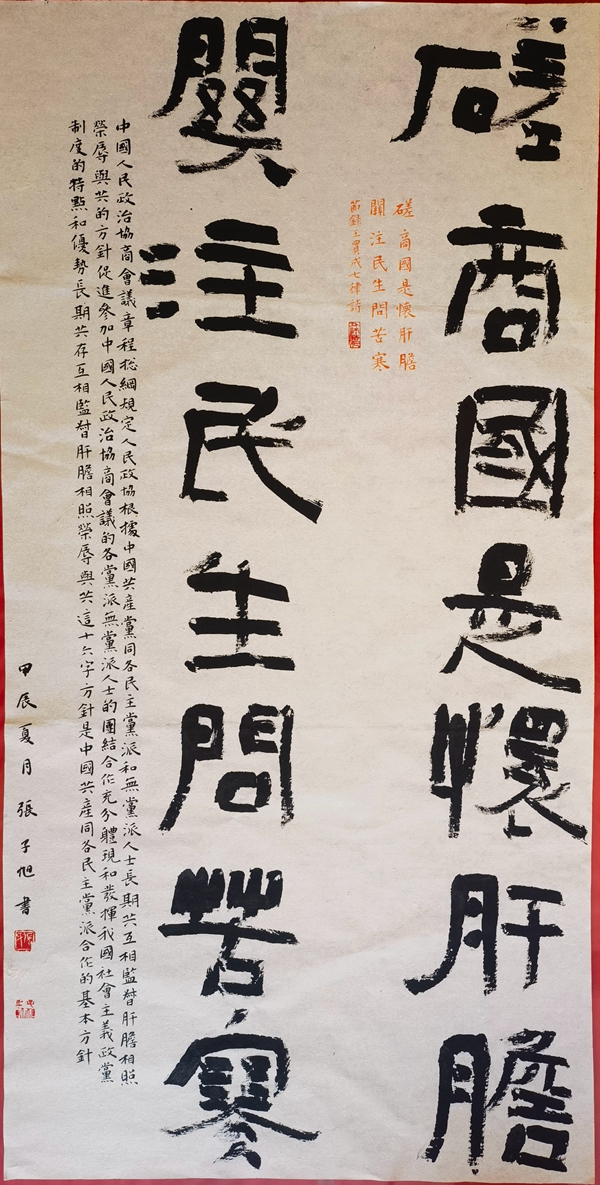 磋商國是懷肝膽
磋商國是懷肝膽
關注民生問苦寒
節錄王成七律詩
關注民生問苦寒
中國人民政治協商會議章程総綱規定人民政協根據中國共產黨同各民主黨派和無黨派人士長期共互相監督肝膽相照
榮辱與共的方針促進參加中國人民政治協商會議的各黨派無黨派人士的團結合作充分體現和發揮我國社會主義政黨
制度的特點和優勢長期共存互相監督肝膽相照榮辱與共這十六字方針是中國共產同各民主黨派合作的基本方針
甲辰夏月張子旭書